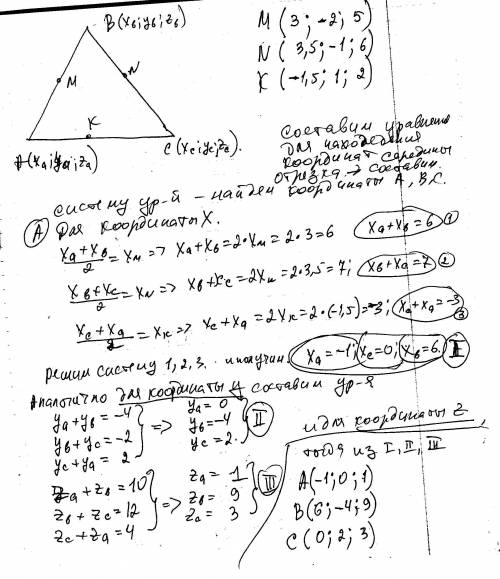 B(xв; yв; zв)
M
N
K
A(xа; yа; zа)
C(xс; yс; zс).
M(3; -2; 5)
N(3,5; -1; 6)
K(-1,5; 1; 2)
Составим уравнения
для нахождения
координат середины
отрезка → составим
систему ур-й - найдем координаты A, B, C.
A Для координаты X.
xа+xв/2 = xм => xа+xв=2·xм=2·3=6 xа+xв=6 ①
xв+xс/2 = xN => xв+xс=2xN=2·3,5=7; xв+xа=7 ②
xс+xа/2 = xк => xс+xа=2xк=2·(-1,5)=-3; xа+xа=-3 ③
решим систему 1, 2, 3. и получим. xа=-1; xс=0; xв=6. I
Аналогично для координаты y составим ур-я
yа+yв=-4
yв+yс=-2
yс+yа= 2
=>
yа= 0
yв=-4
yс=2.
II
zа+zв=10
zв+zс=12
zс+zа=4
=>
zа= 1
zв= 9
zс= 3
III
и для координаты z
тогда из I, II, III
A(-1; 0; 1)
B(6; -4; 9)
C(0; 2; 3)